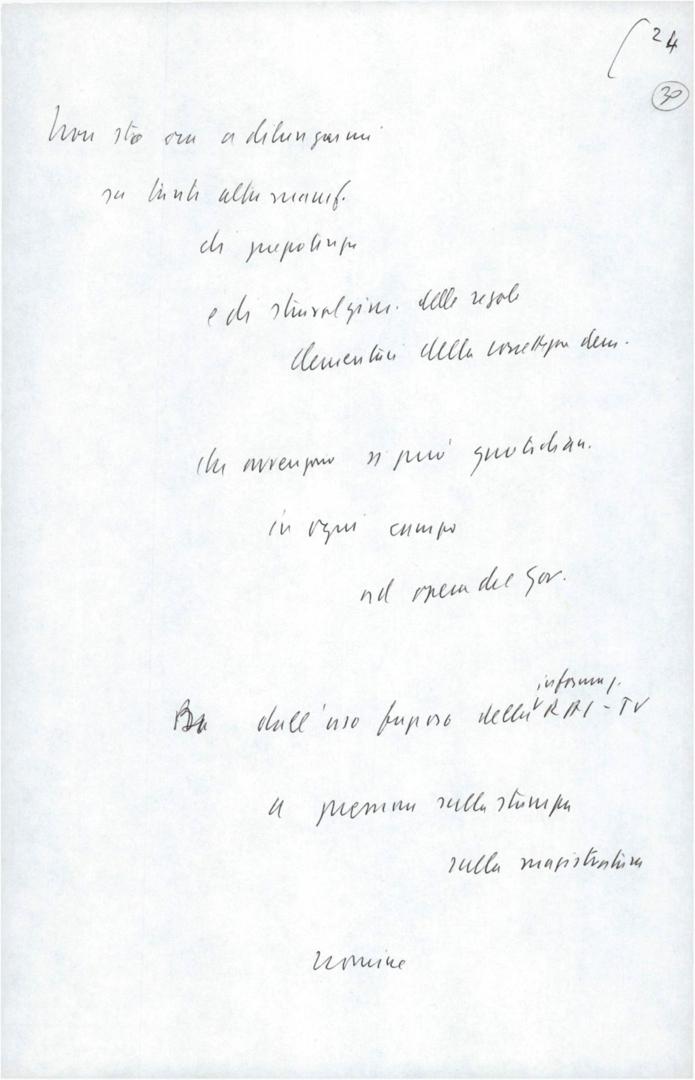 24
30
Non sto ora a dilungarmi
su tante altre manif.
di prepotenza
e di stravolgim. delle regole
elementari della correttezza dem.
che avvengono si può quotidian.
in ogni campo
ad opera del Gov.
dall'uso fazioso della informaz. RAI-TV
a pressioni sulla stampa
sulla magistratura
nomine